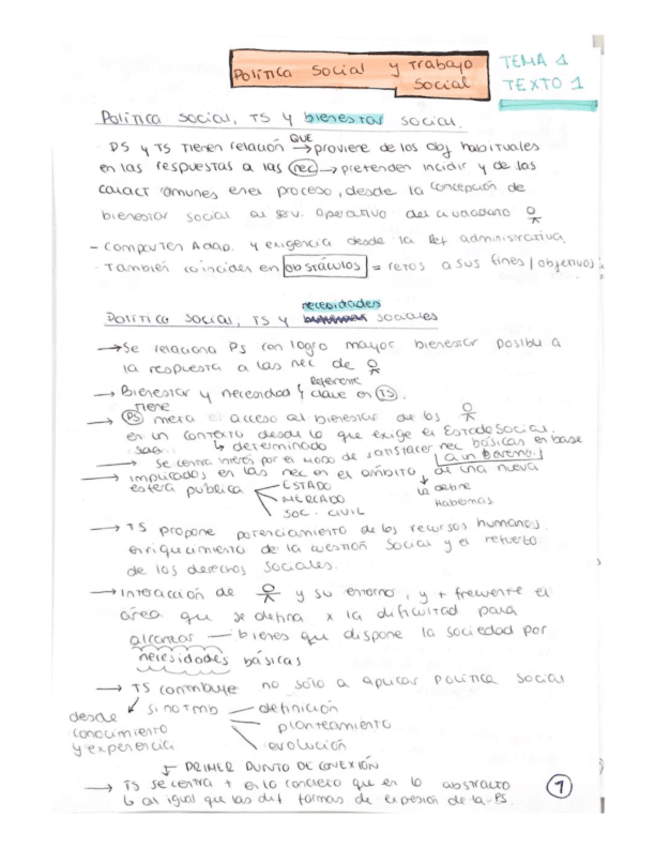 Política Social y Trabajo Social
TEMA 1
TEXTO 1
Política Social, TS y bienestar social.
PS y TS tienen relación QUE → proviene de los obj habituales
en las respuestas a las nec → pretenden incidir y de las
caract comunes en el proceso, desde la concepción de
bienestar social al serv. operativo del ciudadano
- Comparten Adap. y exigencia desde la Ref administrativa.
También coinciden en obstáculos = retos a sus fines/objetivos
Política Social, TS y necesidades sociales
→ Se relaciona PS con logro mayor bienestar posible a
la respuesta a las nec de
→ Bienestar y necesidad Referente clave en TS.
→ PS tiene meta el acceso al bienestar de los
en un contexto desde lo que exige el Estado Social.
↳ determinado
→ Se centra interés por el modo de satisfacer nec básicas en base
→ implicados en las nec en el ámbito de una nueva
esfera pública
ESTADO
MERCADO
SOC. CIVIL
la define
Habermas
→ TS propone potenciamiento de los recursos humanos.
enriquecimiento de la cuestión social y el refuerzo
de los derechos sociales.
→ Interacción de y su entorno, y + frecuente el
área que se defina x la dificultad para
alcanzar — bienes que dispone la sociedad por
necesidades básicas
→ TS contribuye no sólo a aplicar política social
sino tmb
definición
planteamiento
evolución
desde
conocimiento
y experiencia
PRIMER PUNTO DE CONEXIÓN
→ TS se centra + en lo concreto que en lo abstracto
↳ al igual que las dif formas de expresión de la PS
1